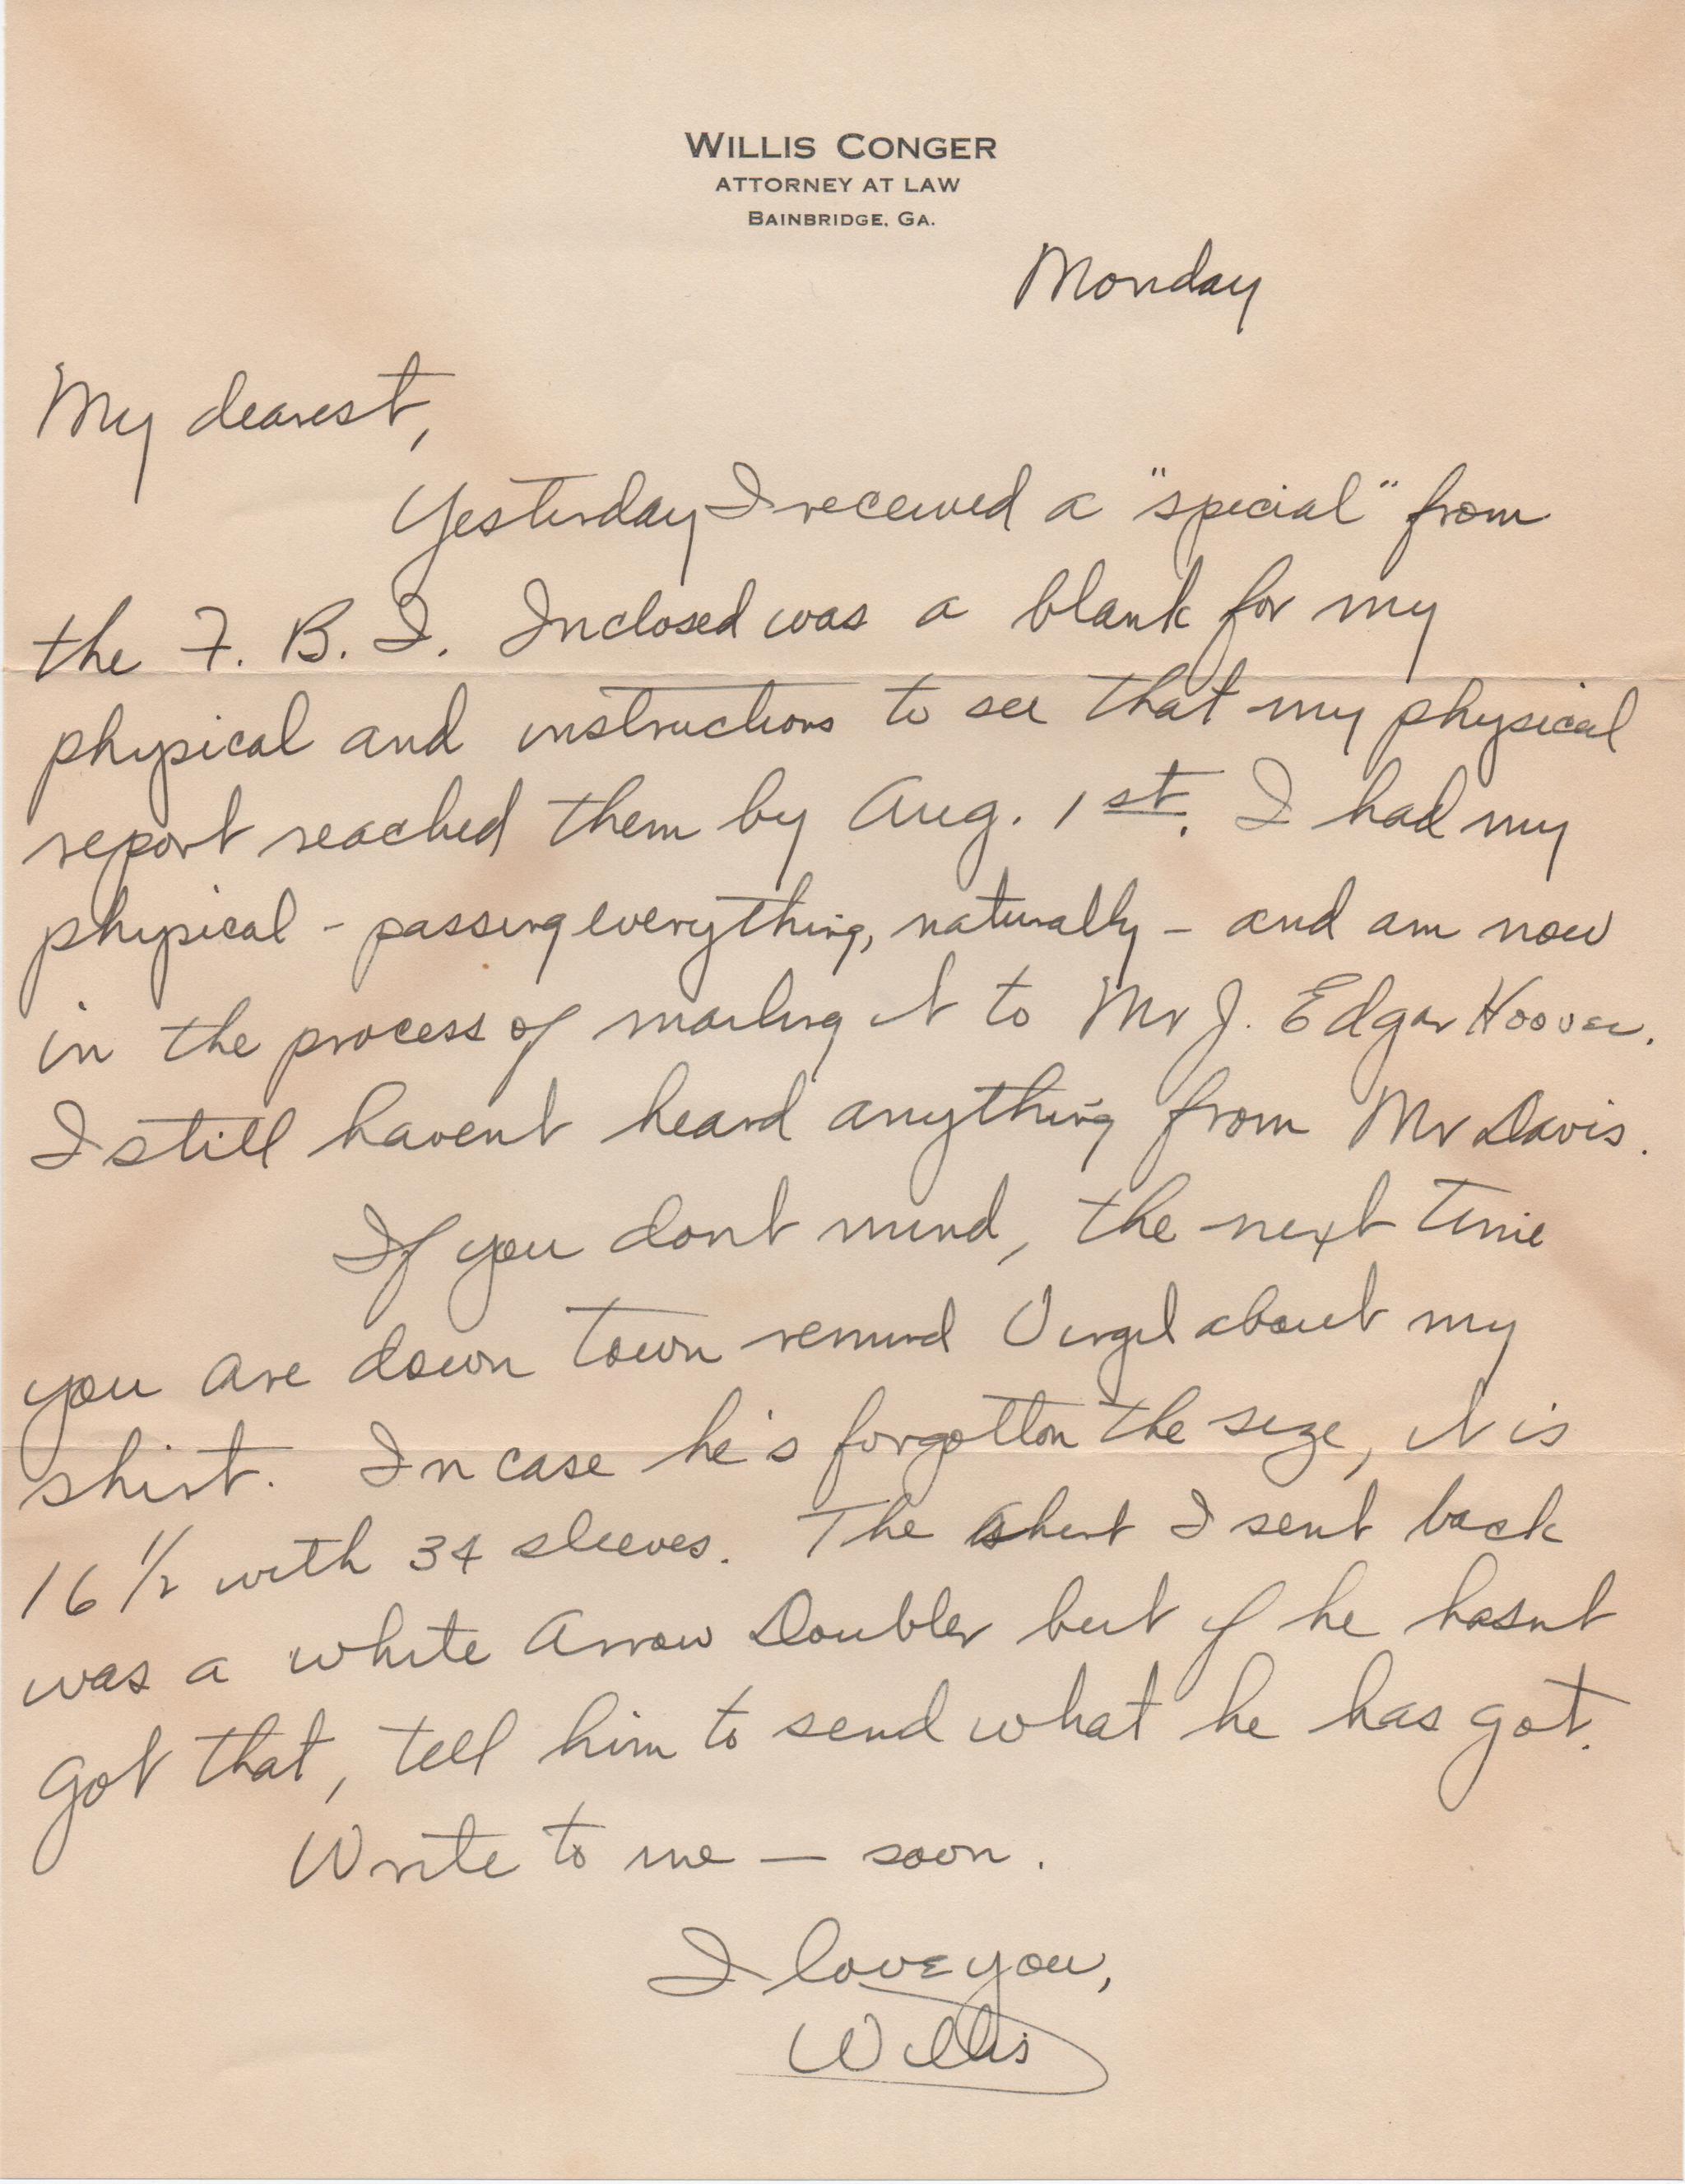 WILLIS CONGER
ATTORNEY AT LAW
BAINBRIDGE, GA.
Monday
My dearest,
Yesterday I received a "special" from
the F. B. I. Inclosed was a blank for my
physical and instructions to see that my physical
report reached them by Aug. 1st. I had my
physical - passing everything, naturally - and am now
in the process of mailing it to Mr J. Edgar Hoover.
I still havent heard anything from Mr Davis.
If you dont mind, the next time
you are down town remind Virgil about my
shirt. In case he's forgotton the size, it is
16 1/2 with 34 sleeves. The shirt I sent back
was a white Arrow Doubler but if he hasnt
got that, tell him to send what he has got.
Write to me — soon.
I love you,
Willis